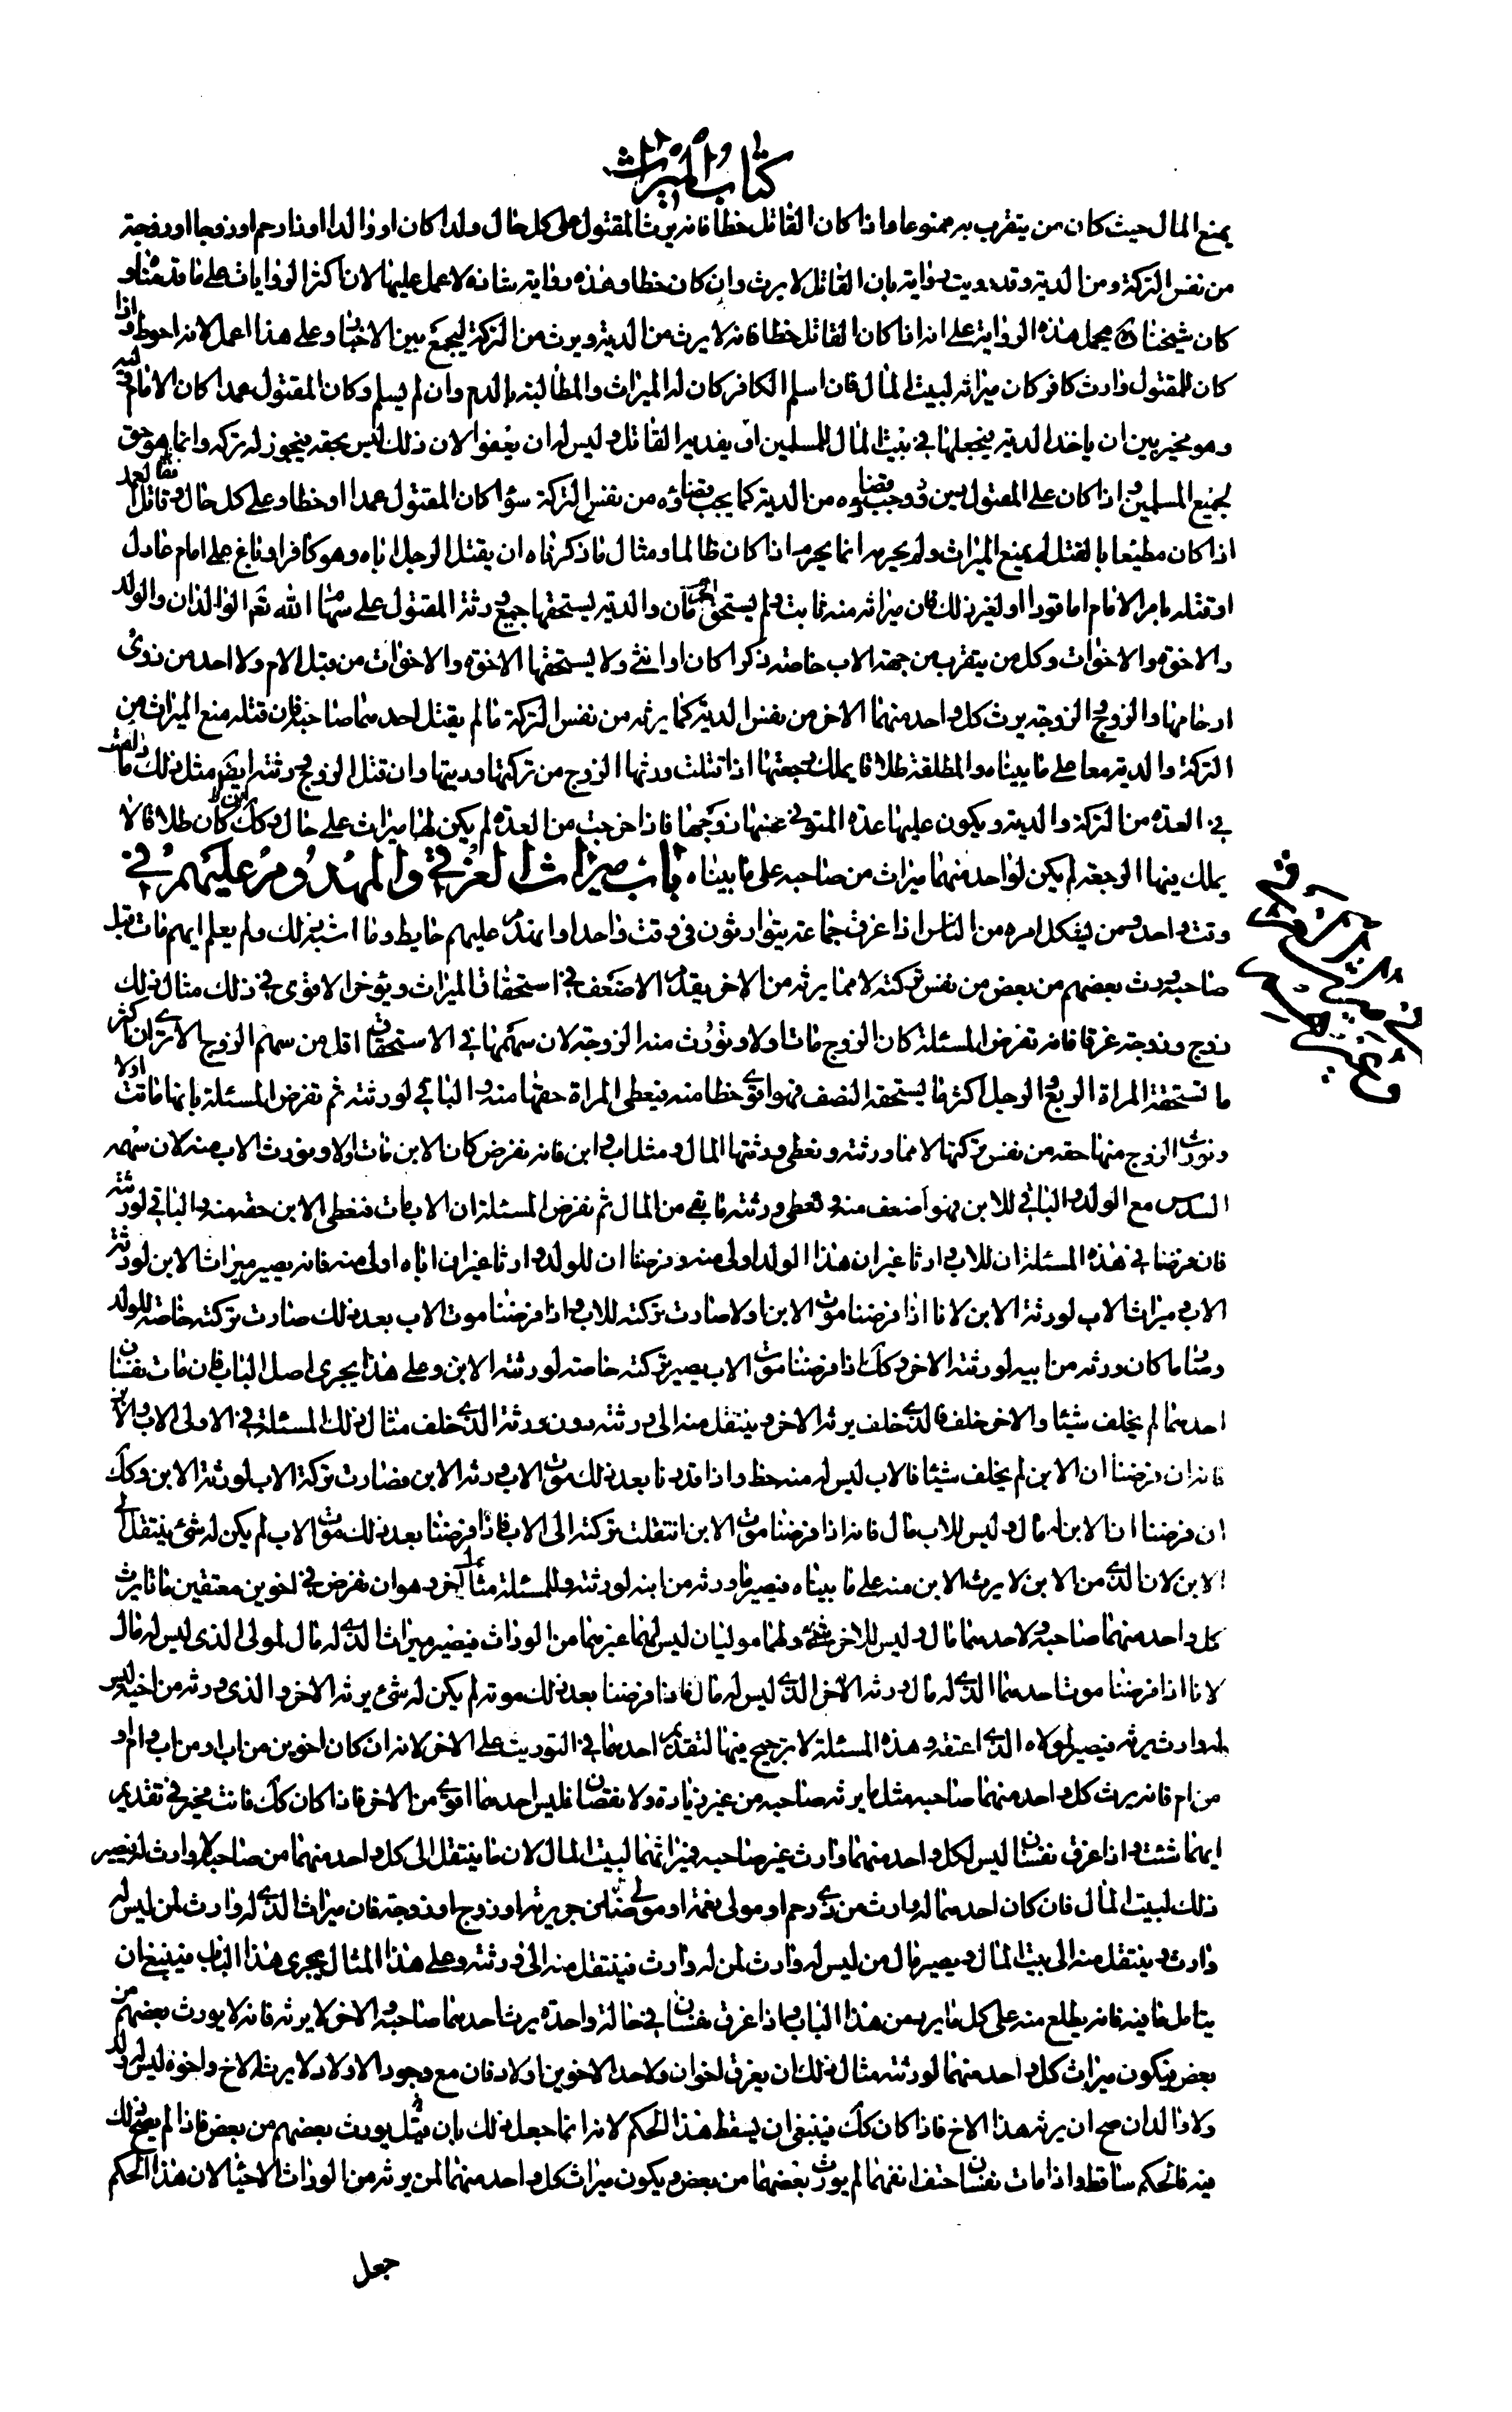 كتاب الميراث
يمنع المال حيث كان من يتقرب به ممنوعا واذا كان القاتل خطأ فانه يرث المقتول على كل حال ولدا كان او والدا او ذا رحم او زوجا او زوجة
من نفس التركة ومن الدية وقد رويت رواية بان القاتل لا يرث وان كان خطا وهذه رواية شاذة لا عمل عليها لان اكثر الروايات على ما قدمناه و
كان شيخنا ره يحمل هذه الرواية على انه اذا كان القاتل خطا فانه لا يرث من الدية ويرث من التركة ليجمع بين الاخبار وعلى هذا اعمل لانه احوط واذا
كان للمقتول وارث كافر كان ميراثه لبيت المال فان اسلم الكافر كان له الميراث والمطالبة بالدم وان لم يسلم وكان المقتول عمدا كان الامام وليه
وهو مخير بين ان ياخذ الدية فيجعلها في بيت المال للمسلمين او يقيد به القاتل وليس له ان يعفو لان ذلك ليس بحقه فيجوز له تركه وانما هو حق
لجميع المسلمين واذا كان على المقتول دين وجب قضاؤه من الدية كما يجب قضاؤه من نفس التركة سواء كان المقتول عمدا او خطا وعلى كل حال وقاتل العمد
اذا كان مطيعا بالقتل لم يمنع الميراث ولم يحرمه انما يحرمه اذا كان ظالما ومثال ما ذكرناه ان يقتل الرجل اباه وهو كافر او باغ على امام عادل
او قتله بامر الامام اما قودا او لغير ذلك فان ميراثه منه ثابت ولم يستحق الحرمان والدية يستحقها جميع ورثة المقتول على سهام الله تعم الوالدان والولد
والاخوة والاخوات وكل من يتقرب من جهة الاب خاصة ذكرا كان او انثى ولا يستحقها الاخوة والاخوات من قبل الام ولا احد من ذوى
ارحامها والزوج والزوجة يرث كل واحد منهما الاخر من نفس الدية كما يرثه من نفس التركة ما لم يقتل احدهما صاحبه فان قتله منع الميراث من
التركة والدية معا على ما بيناه والمطلقة طلاقا يملك رجعتها اذا قتلت ورثها الزوج من تركتها وديتها وان قتل الزوج ورثته ايضا مثل ذلك ما دامت
في العدة من التركة والدية ويكون عليها عدة المتوفى عنها زوجها فاذا خرجت من العدة لم يكن لها ميراث على حال وكك ان كان طلاقا لا
يملك فيها الرجعة لم يكن لواحد منهما ميراث من صاحبه على ما بيناه باب ميراث الغرقى والمهدوم عليهم في
وقت واحد ومن يشكل امره من الناس اذا غرق جماعة يتوارثون في وقت واحد او انهدم عليهم حايط وما اشبه ذلك ولم يعلم ايهم مات قبل
صاحبه ورث بعضهم من بعض من نفس تركته لا مما يرثه من الاخر يقدم الاضعف في استحقاق الميراث ويؤخر الاقوى في ذلك مثال ذلك
زوج وزوجة غرقا فانه تفرض المسئلة كان الزوج مات اولا وتورث منه الزوجة لان سهمها في الاستحقاق اقل من سهم الزوج الا ترى ان اكثر
ما تستحقه المراة الربع والرجل اكثر ما يستحقه النصف فهو اقوى حظا منه فيعطى المراة حقها منه والباقي لورثته ثم تفرض المسئلة بانها ماتت اولا
ونورث الزوج منها حقه من نفس تركتها لا مما ورثته ونعطي ورثتها المال ومثل اب وابن فانه نفرض كان الابن مات اولا ونورث الاب منه لان سهمه
السدس مع الولد والباقي للابن فهو اضعف منه ونعطي ورثته ما بقي من المال ثم نفرض المسئلة ان الاب مات فنعطي الابن حقه منه والباقي لورثته
فان فرضنا في هذه المسئلة ان للاب وارثا غير ان هذا الولد اولى منه وفرضنا ان للولد وارثا غير ان اباه اولى منه فانه يصير ميراث الابن لورثة
الاب وميراث الاب لورثة الابن لانا اذا فرضنا موت الابن اولا صارت تركته للاب واذا فرضنا موت الاب بعد ذلك صارت تركته خاصة للولد
وصار ما كان ورثه من ابيه لورثته الاخر وكك اذا فرضنا موت الاب يصير تركته خاصة لورثة الابن وعلى هذا يجرى اصل الباب فان مات نفسان
احدهما لم يخلف شيئا والاخر خلف فالذي خلف يرثه الاخر وينتقل منه الى ورثته دون ورثة الذي خلف مثال ذلك المسئلة في الاولى الاب والابن
فانه ان فرضنا ان الابن لم يخلف شيئا فالاب ليس له منه حظ واذا قدرنا بعد ذلك موت الاب ورثه الابن فصارت تركة الاب لورثة الابن وكك
ان فرضنا ان الابن له مال وليس للاب مال فانه اذا فرضنا موت الابن انتقلت تركته الى الاب فاذا فرضنا بعد ذلك موت الاب لم يكن له شئ ينتقل الى
الابن لان الذي من الابن لا يرثه الابن منه على ما بيناه فيصير ما ورثه من ابنه لورثته وللمسئلة مثال اخر وهو ان نفرض في اخوين معتقين ماتا يرث
كل واحد منهما صاحبه ولاحدهما مال وليس للاخر شئ ولهما موليان ليس لهما غيرهما من الوراث فيصير ميراث الذي له مال لمولى الذى ليس له مال
لانا اذا فرضنا موت احدهما الذي له مال ورثه الاخر الذي ليس له مال فاذا فرضنا بعد ذلك موته لم يكن له شئ يرثه الاخر والذى ورثه من اخيه ليس
له وارث يرثه فيصير لمولاه الذي اعتقه وهذه المسئلة لا ترجيح فيها لتقديم احدهما في التوريث على الاخر لانه ان كان اخوين من اب او من اب وام او
من ام فانه يرث كل واحد منهما صاحبه مثل ما يرثه صاحبه من غير زيادة ولا نقصان فليس احدهما اقوى من الاخر فاذا كان كك فانت مخير في تقديم
ايهما شئت واذا غرق نفسان ليس لكل واحد منهما وارث غير صاحبه فميراثهما لبيت المال لان ما ينتقل الى كل واحد منهما من صاحبه لا وارث له فيصير
ذلك لبيت المال فان كان احدهما له وارث من ذي رحم او مولى نعمة او مولى ضامن جريرة او زوج او زوجة فان ميراث الذي له وارث لمن ليس له
وارث وينتقل منه الى بيت المال ويصير مال من ليس له وارث لمن له وارث فينتقل منه الى ورثته وعلى هذا المثال يجرى هذا الباب فينبغي ان
يتامل ما فيه فانه يطلع منه على كل ما يرد من هذا الباب واذا غرق نفسان في حالة واحدة يرث احدهما صاحبه والاخر لا يرثه فانه لا يورث بعضهم من
بعض فيكون ميراث كل واحد منهما لورثته مثال ذلك ان يغرق اخوان ولاحد الاخوين اولاد فان مع وجود الاولاد لا يرثه الاخ واخوه ليس له ولد
ولا والدان صح ان يرثه هذا الاخ فاذا كان كك فينبغى ان يسقط هذا الحكم لانه انما جعل ذلك بان يورث بعضهم من بعض فاذا لم يصح ذلك
فيه فالحكم ساقط واذا مات نفسان حتف انفهما لم يورث بعضهما من بعض ويكون ميراث كل واحد منهما لمن يرثه من الوراث الاحياء لان هذا الحكم
جعل